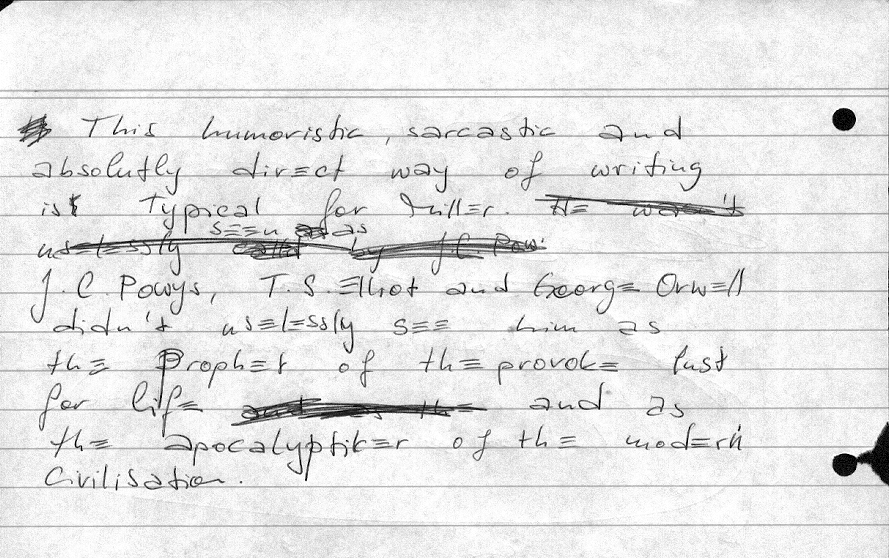 This humoristic, sarcastic and
absolutly direct way of writing
is typical for Miller. He wasn't
seen as
uselessly called by J.C. Pow
J.C. Powys, T.S. Elliot and George Orwell
didn't uselessly see him as
the Prophet of the provoke lust
for life and as
the apocalyptiker of the modern
Civilisation.